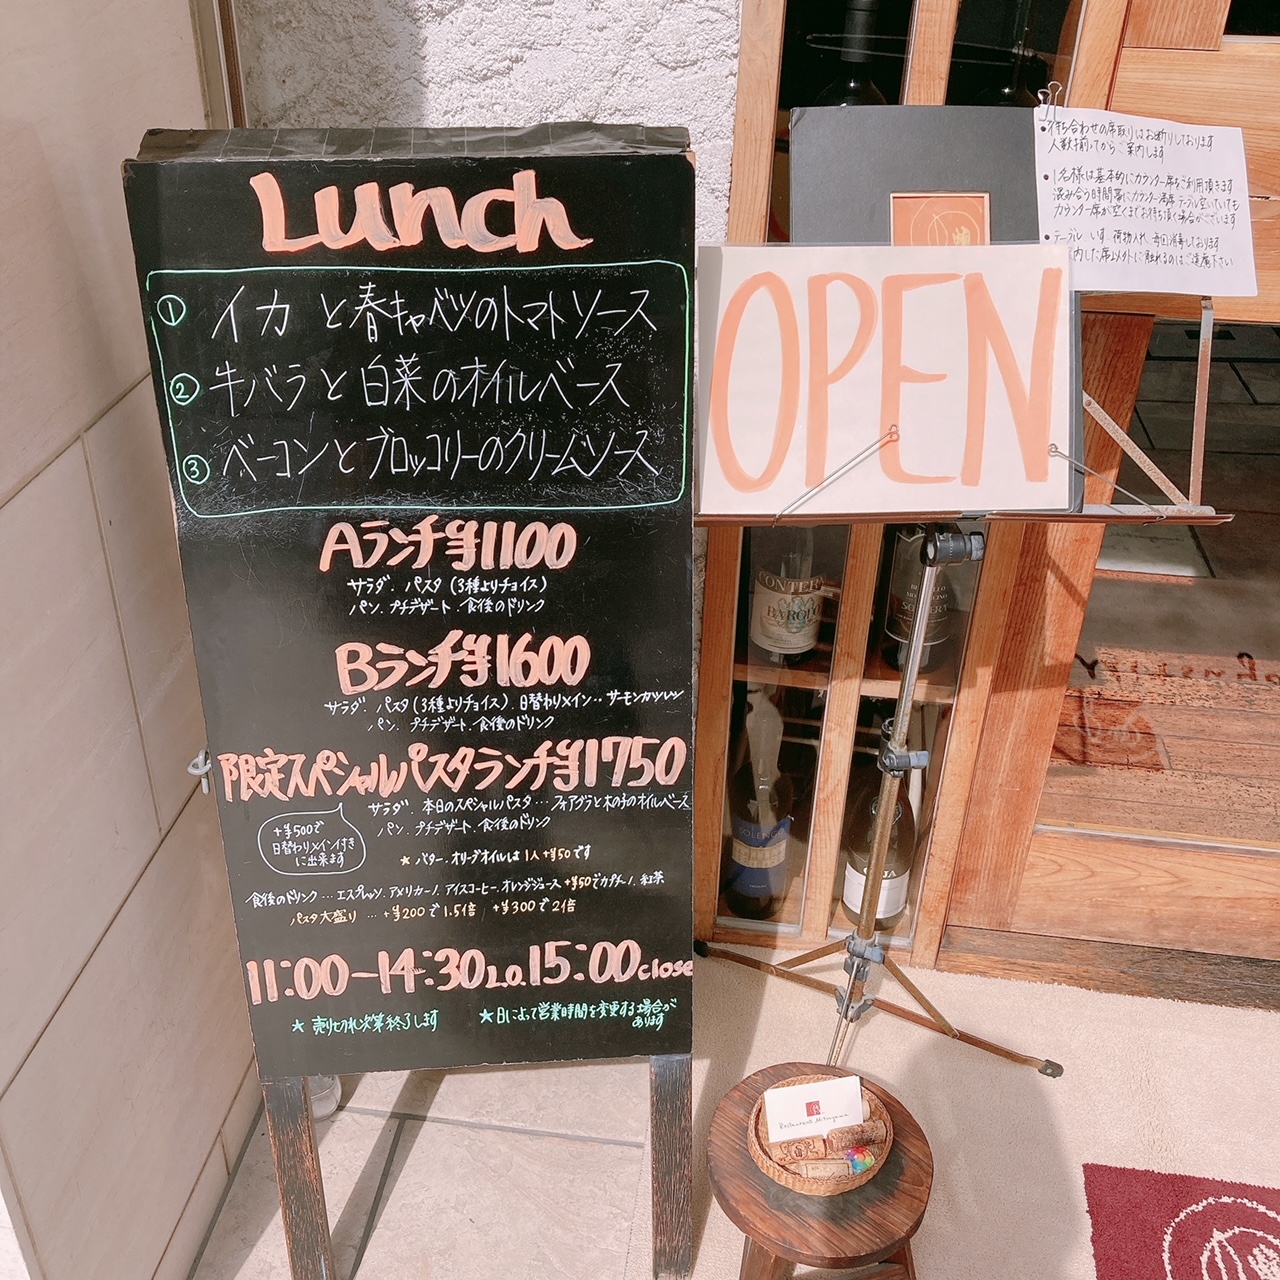 Lunch
① イカ と 春キャベツのトマトソース
② 牛バラと 白菜のオイルベース
③ ベーコンとブロッコリーのクリームソース
Aランチ¥1100
サラダ. パスタ(3種よりチョイス)
パン. プチデザート. 食後のドリンク
Bランチ¥1600
サラダ. パスタ(3種よりチョイス). 日替わりメイン…サーモンカツレツ
パン. プチデザート. 食後のドリンク
限定スペシャルパスタランチ¥1750
サラダ. 本日のスペシャルパスタ…フォアグラと木の子のオイルベース
パン. プチデザート. 食後のドリンク
+¥500で
日替わりメイン付き
に出来ます
★ バター. オリーブオイルは 1人+¥50です
食後のドリンク…エスプレッソ. アメリカーノ. アイスコーヒー. オレンジジュース +¥50でカプチーノ. 紅茶
パスタ大盛り …+¥200で1.5倍 +¥300で2倍
11:00-14:30L.O.15:00close
★ 売り切れ次第終了します
★日によって営業時間を変更する場合が
あります
OPEN
•待ち合わせの席取りはお断りしております
人数揃ってからご案内します
•1名様は基本的にカウンター席をご利用頂きます
混み合う時間帯にカウンター満席 テーブル空いていても
カウンター席が空くまでお待ち頂く場合がございます
•テーブル いす 荷物入れ 毎回消毒しております
内した席以外に触れるのはご遠慮下さい
CONTER
BAROLO
SOLENGO
GAJA
Restaurant Mitsuyama